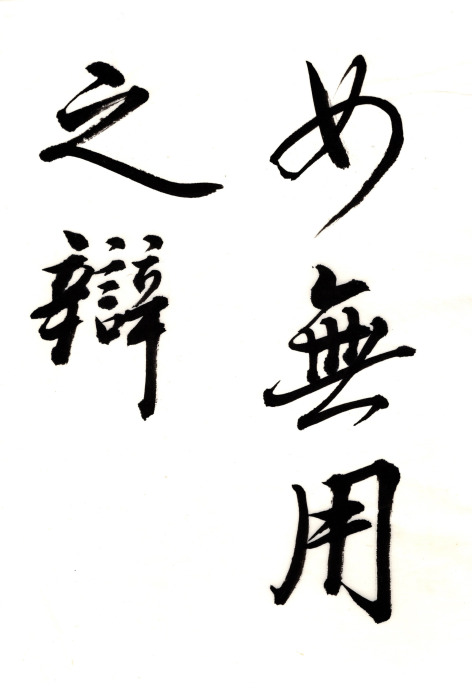 め無用
之辯